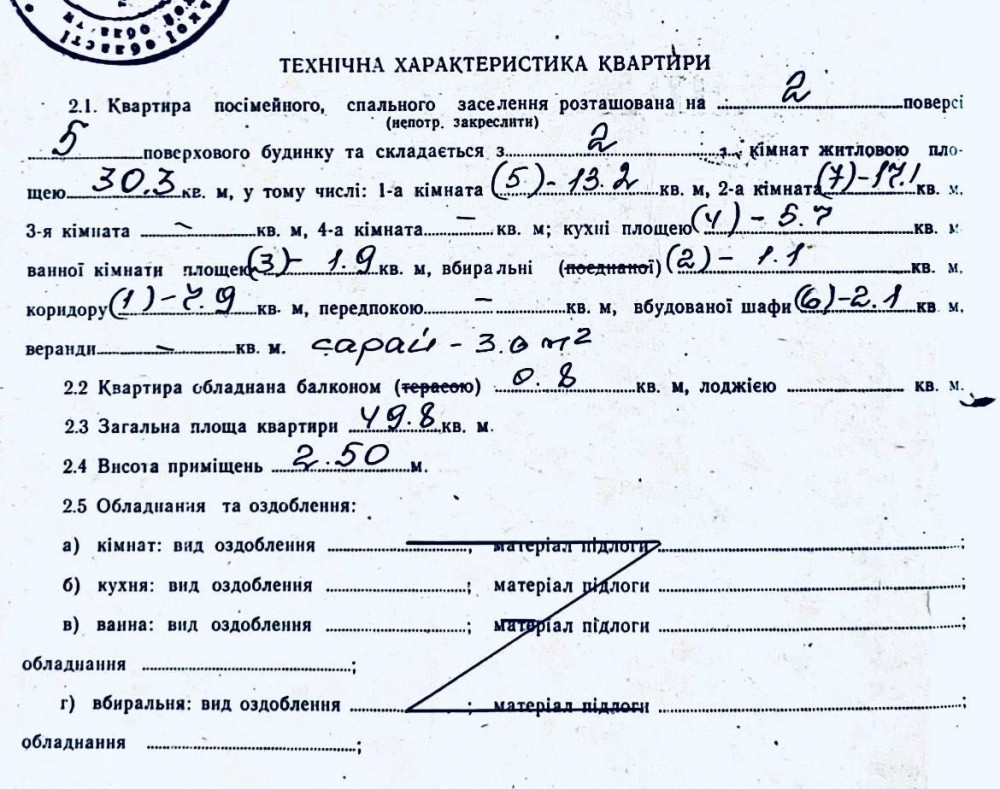 області
ТЕХНІЧНА ХАРАКТЕРИСТИКА КВАРТИРИ
2.1. Квартира посімейного, спального заселення розташована на 2 поверсі
(непотр. закреслити)
5 поверхового будинку та складається з 2 кімнат житловою пло-
щею 30.3 кв. м, у тому числі: 1-а кімната (5) - 13.2 кв. м, 2-а кімната (7) - 17.1 кв. м.
3-я кімната — кв. м, 4-а кімната — кв. м; кухні площею (4) - 5.7 кв. м
ванної кімнати площею (3) - 1.9 кв. м, вбиральні (поєднаної) (2) - 1.1 кв. м.
коридору (1) - 7.9 кв. м, передпокою — кв. м, вбудованої шафи (6) - 2.1 кв м.
веранди — кв. м. сарай - 3.0 м²
2.2 Квартира обладнана балконом (терасою) 0.8 кв. м, лоджією кв. м.
2.3 Загальна площа квартири 49.8 кв. м.
2.4 Висота приміщень 2.50 м.
2.5 Обладнання та оздоблення:
а) кімнат: вид оздоблення ; матеріал підлоги ;
б) кухня: вид оздоблення ; матеріал підлоги ;
в) ванна: вид оздоблення ; матеріал підлоги ;
обладнання ;
г) вбиральня: вид оздоблення ; матеріал підлоги ;
обладнання ;